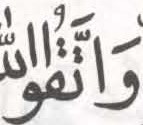 وَاتَّقُوا اللّٰ